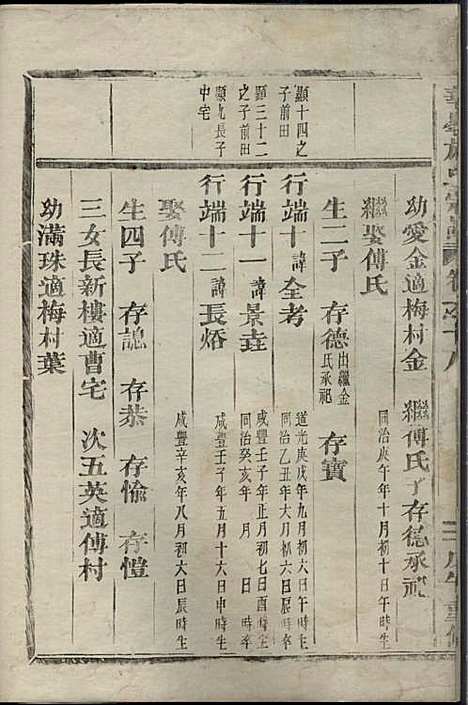 幼愛金適梅村金 繼傅氏子存德承祀
繼娶傅氏 同治庚午年十月初十日午時生
生二子 存德出繼金氏承祀 存寶
顯十四之子前田
行端十 諱全考 道光庚戌年九月初六日午時生 同治乙丑年六月初六日辰時卒
顯三十二之子前田
行端十一 諱景垚 咸豐壬子年正月初七日酉時生 同治癸亥年 月 日 時卒
顯九長子中宅
行端十二 諱長焀 咸豐壬子年五月十六日申時生
娶傅氏 咸豐辛亥年八月初六日辰時生
生四子 存諰 存恭 存愉 存愷
三女長新樓適曹宅 次五英適傅村
幼滿珠適梅村葉